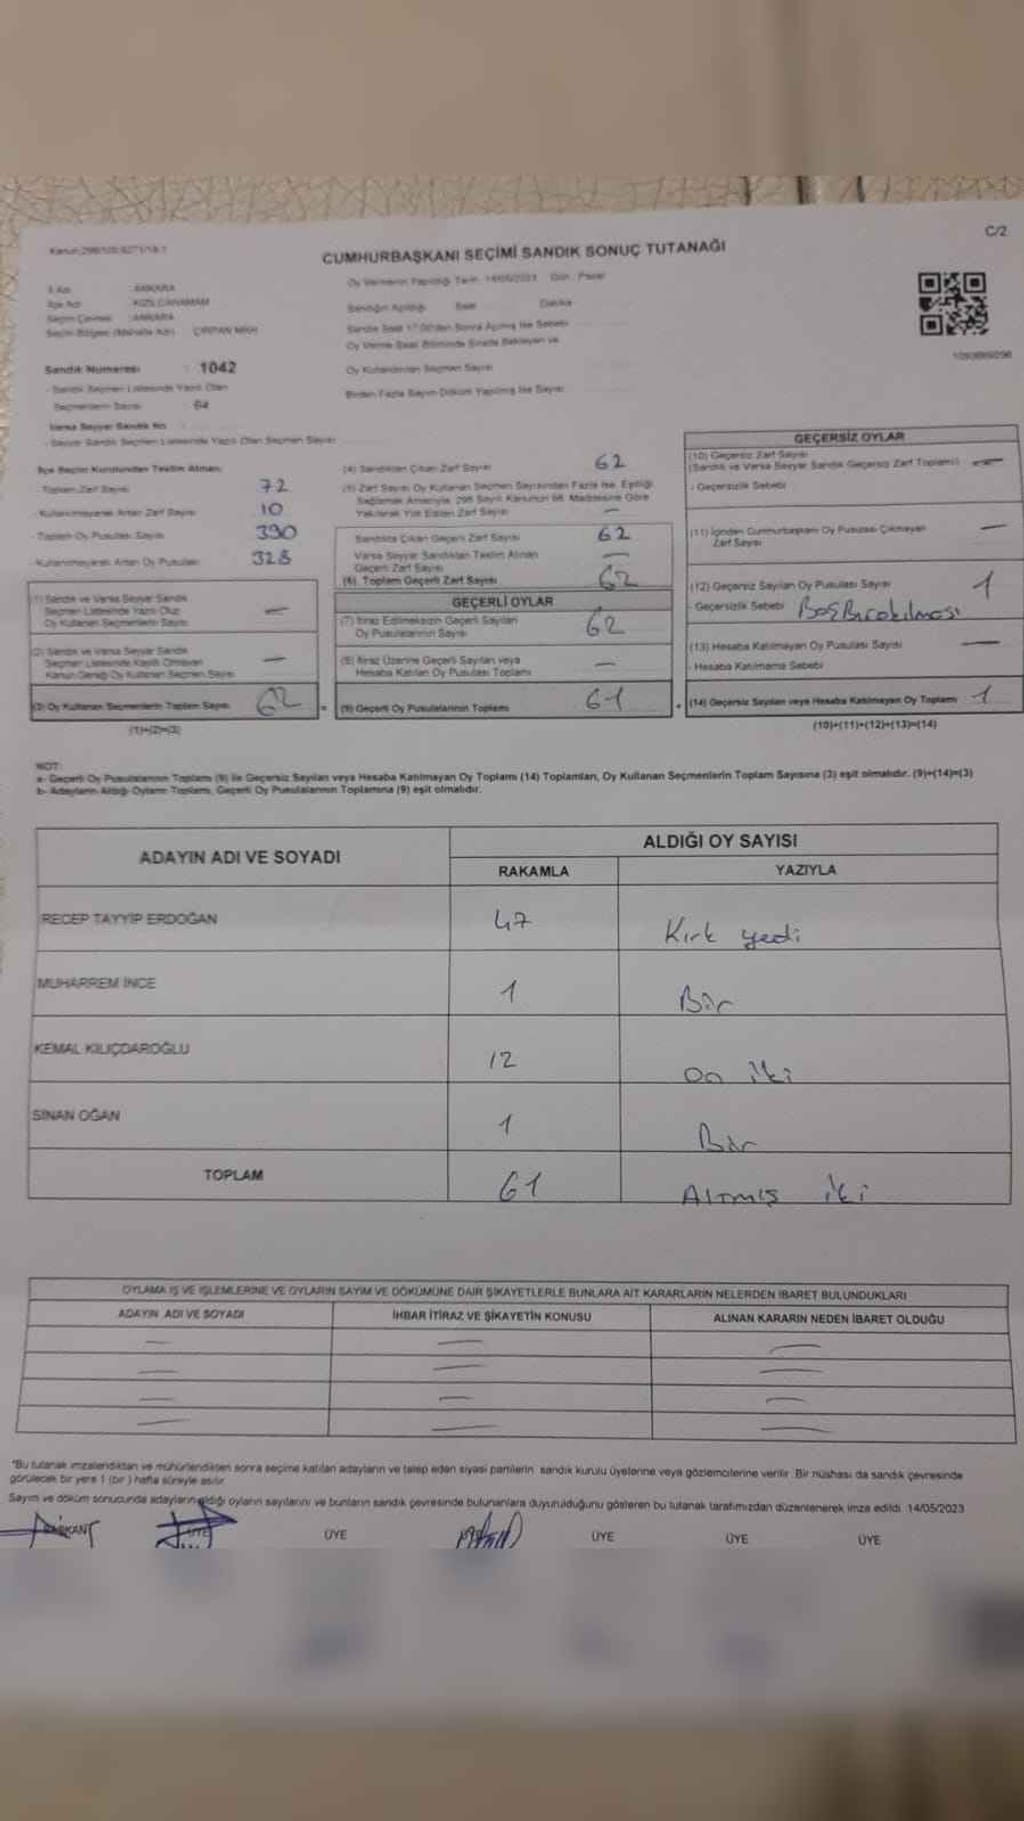 C/2
CUMHURBAŞKANI SEÇİMİ SANDIK SONUÇ TUTANAĞI
Oy Vermenin Yapıldığı Tarih 14/05/2023 Gün : Pazar
İl Adı : ANKARA
İlçe Adı : KIZILCAHAMAM
Seçim Çevresi : ANKARA
Seçim Bölgesi (Mahalle Adı)
Sandığın Açıldığı Saat Dakika
Sandık Saat 17:00'den Sonra Açılmış İse Sebebi
Oy Verme Saati Bitiminde Sırada Bekleyen ve
Oy Kullandırılan Seçmen Sayısı
Birden Fazla Sayım Döküm Yapılmış İse Sayısı
Sandık Numarası : 1042
- Sandık Seçmen Listesinde Yazılı Olan
Seçmenlerin Sayısı : 64
Varsa Seyyar Sandık No
- Seyyar Sandık Seçmen Listesinde Yazılı Olan Seçmen Sayısı
İlçe Seçim Kurulundan Teslim Alınan
- Toplam Zarf Sayısı 72
- Kullanılmayarak Artan Zarf Sayısı 10
- Toplam Oy Pusulası Sayısı 390
- Kullanılmayarak Artan Oy Pusulası 328
(1) Sandık ve Varsa Seyyar Sandık
Seçmen Listesinde Yazılı Olup
Oy Kullanan Seçmenlerin Sayısı —
(2) Sandık ve Varsa Seyyar Sandık
Seçmen Listesinde Kayıtlı Olmayan
Kanun Gereği Oy Kullanan Seçmen Sayısı —
(3) Oy Kullanan Seçmenlerin Toplam Sayısı 62
(1)+(2)=(3)
(4) Sandıktan Çıkan Zarf Sayısı 62
(5) Zarf Sayısı Oy Kullanan Seçmen Sayısından Fazla İse, Eşitliği
Sağlamak Amacıyla, 298 Sayılı Kanunun 98. Maddesine Göre
Yakılarak Yok Edilen Zarf Sayısı —
Sandıkta Çıkan Geçerli Zarf Sayısı 62
Varsa Seyyar Sandıktan Teslim Alınan
Geçerli Zarf Sayısı —
(6) Toplam Geçerli Zarf Sayısı 62
GEÇERLİ OYLAR
(7) İtiraz Edilmeksizin Geçerli Sayılan
Oy Pusulalarının Sayısı 62
(8) İtiraz Üzerine Geçerli Sayılan veya
Hesaba Katılan Oy Pusulası Toplamı —
= (9) Geçerli Oy Pusulalarının Toplamı 61
GEÇERSİZ OYLAR
(10) Geçersiz Zarf Sayısı
(Sandık ve Varsa Seyyar Sandık Geçersiz Zarf Toplamı) —
- Geçersizlik Sebebi
(11) İçinden Cumhurbaşkanı Oy Pusulası Çıkmayan
Zarf Sayısı —
(12) Geçersiz Sayılan Oy Pusulası Sayısı 1
- Geçersizlik Sebebi Boş Bırakılması
(13) Hesaba Katılmayan Oy Pusulası Sayısı —
- Hesaba Katılmama Sebebi
+ (14) Geçersiz Sayılan veya Hesaba Katılmayan Oy Toplamı 1
(10)+(11)+(12)+(13)=(14)
NOT:
a- Geçerli Oy Pusulalarının Toplamı (9) ile Geçersiz Sayılan veya Hesaba Katılmayan Oy Toplamı (14) Toplamları, Oy Kullanan Seçmenlerin Toplam Sayısına (3) eşit olmalıdır. (9)+(14)=(3)
b- Adayların Aldığı Oyların Toplamı, Geçerli Oy Pusulalarının Toplamına (9) eşit olmalıdır.
ADAYIN ADI VE SOYADI ALDIĞI OY SAYISI
RAKAMLA YAZIYLA
RECEP TAYYİP ERDOĞAN 47 Kırk yedi
MUHARREM İNCE 1 Bir
KEMAL KILIÇDAROĞLU 12 On iki
SİNAN OĞAN 1 Bir
TOPLAM 61 Altmış iki
OYLAMA İŞ VE İŞLEMLERİNE VE OYLARIN SAYIM VE DÖKÜMÜNE DAİR ŞİKAYETLERLE BUNLARA AİT KARARLARIN NELERDEN İBARET BULUNDUKLARI
ADAYIN ADI VE SOYADI İHBAR İTİRAZ VE ŞİKAYETİN KONUSU ALINAN KARARIN NEDEN İBARET OLDUĞU
— — —
— — —
— — —
— — —
*Bu tutanak imzalandıktan ve mühürlendikten sonra seçime katılan adayların ve talep eden siyasi partilerin sandık kurulu üyelerine veya gözlemcilerine verilir. Bir nüshası da sandık çevresinde
görülecek bir yere 1 (bir) hafta süreyle asılır.
Sayım ve döküm sonucunda adayların aldığı oyların sayılarını ve bunların sandık çevresinde bulunanlara duyurulduğunu gösteren bu tutanak tarafımızdan düzenlenerek imza edildi. 14/05/2023
BAŞKAN ÜYE ÜYE ÜYE ÜYE ÜYE